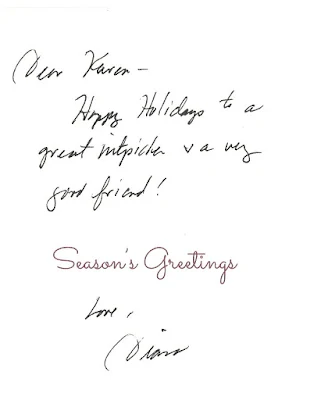 Dear Karen –
Happy Holidays to a
great nitpicker & a very
good friend!
Season's Greetings
Love,
Diana